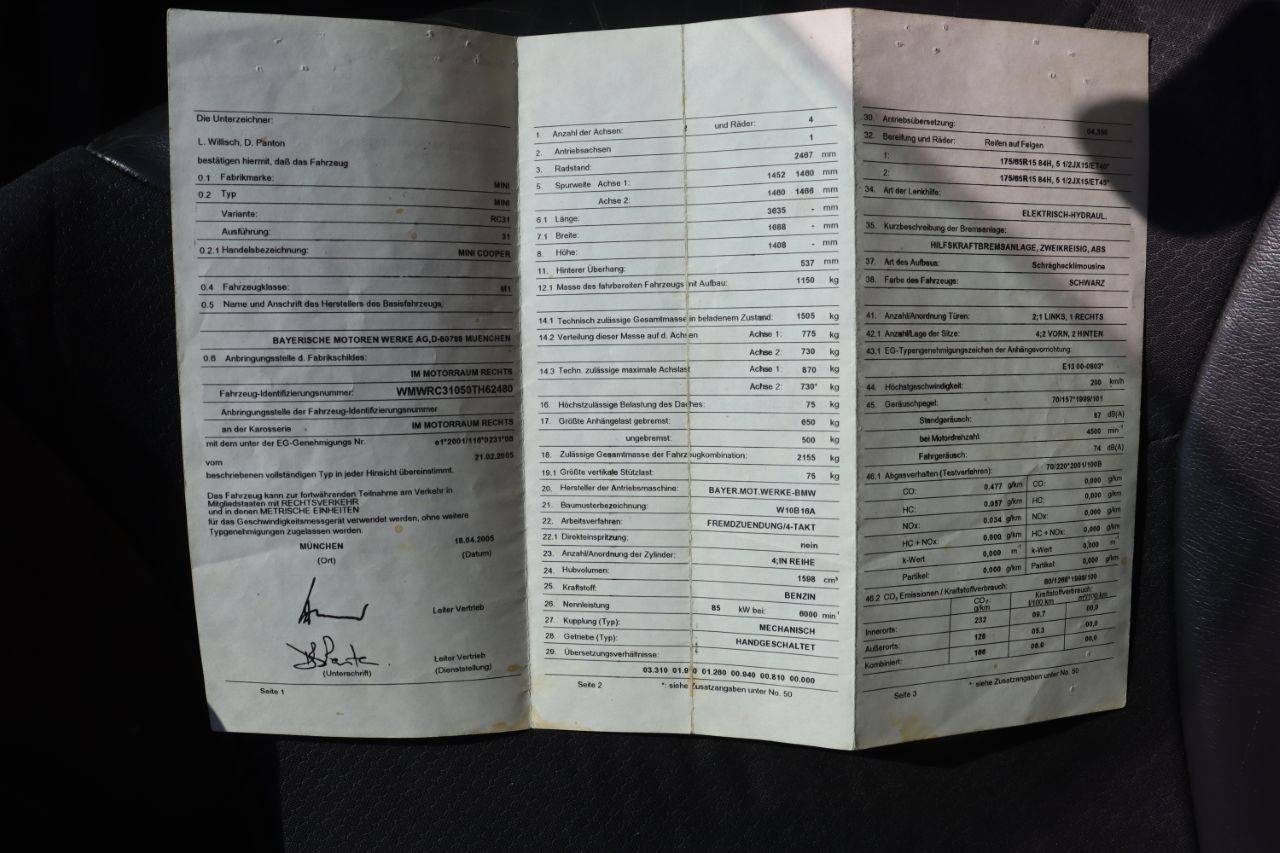 Die Unterzeichner:
L. Willisch, D. Panton
bestätigen hiermit, daß das Fahrzeug
0.1 Fabrikmarke: MINI
0.2 Typ MINI
Variante: RC31
Ausführung: 31
0.2.1 Handelsbezeichnung: MINI COOPER
0.4 Fahrzeugklasse: M1
0.5 Name und Anschrift des Herstellers des Basisfahrzeugs:
BAYERISCHE MOTOREN WERKE AG,D-80788 MUENCHEN
0.6 Anbringungsstelle d. Fabrikschildes:
IM MOTORRAUM RECHTS
Fahrzeug-Identifizierungsnummer: WMWRC31050TH62480
Anbringungsstelle der Fahrzeug-Identifizierungsnummer
an der Karosserie IM MOTORRAUM RECHTS
mit dem unter der EG-Genehmigungs Nr. e1*2001/116*0231*08
vom 21.02.2005
beschriebenen vollständigen Typ in jeder Hinsicht übereinstimmt.
Das Fahrzeug kann zur fortwährenden Teilnahme am Verkehr in
Mitgliedstaaten mit RECHTSVERKEHR
und in denen METRISCHE EINHEITEN
für das Geschwindigkeitsmessgerät verwendet werden, ohne weitere
Typgenehmigungen zugelassen werden.
MÜNCHEN 18.04.2005
(Ort) (Datum)
Leiter Vertrieb
Leiter Vertrieb
(Unterschrift) (Dienststellung)
Seite 1
1. Anzahl der Achsen: und Räder: 4
2. Antriebsachsen 1
3. Radstand: 2467 mm
5. Spurweite Achse 1: 1452 1460 mm
Achse 2: 1460 1466 mm
6.1 Länge: 3635 - mm
7.1 Breite: 1688 - mm
8. Höhe: 1408 - mm
11. Hinterer Überhang: 537 mm
12.1 Masse des fahrbereiten Fahrzeugs mit Aufbau: 1150 kg
14.1 Technisch zulässige Gesamtmasse in beladenem Zustand: 1505 kg
14.2 Verteilung dieser Masse auf d. Achsen Achse 1: 775 kg
Achse 2: 730 kg
14.3 Techn. zulässige maximale Achslast Achse 1: 870 kg
Achse 2: 730* kg
16. Höchstzulässige Belastung des Daches: 75 kg
17. Größte Anhängelast gebremst: 650 kg
ungebremst: 500 kg
18. Zulässige Gesamtmasse der Fahrzeugkombination: 2155 kg
19.1 Größte vertikale Stützlast: 75 kg
20. Hersteller der Antriebsmaschine: BAYER.MOT.WERKE-BMW
21. Baumusterbezeichnung: W10B16A
22. Arbeitsverfahren: FREMDZUENDUNG/4-TAKT
22.1 Direkteinspritzung: nein
23. Anzahl/Anordnung der Zylinder: 4;IN REIHE
24. Hubvolumen: 1598 cm³
25. Kraftstoff: BENZIN
26. Nennleistung 85 kW bei: 6000 min⁻¹
27. Kupplung (Typ): MECHANISCH
28. Getriebe (Typ): HANDGESCHALTET
29. Übersetzungsverhältnisse:
03.310 01.9 0 01.280 00.940 00.810 00.000
Seite 2 *: siehe Zusatzangaben unter No. 50
30. Antriebsübersetzung: 04.350
32. Bereifung und Räder: Reifen auf Felgen
1: 175/65R15 84H, 5 1/2JX15/ET45*
2: 175/65R15 84H, 5 1/2JX15/ET45*
34. Art der Lenkhilfe:
ELEKTRISCH-HYDRAUL.
35. Kurzbeschreibung der Bremsanlage:
HILFSKRAFTBREMSANLAGE, ZWEIKREISIG, ABS
37. Art des Aufbaus: Schräghecklimousine
38. Farbe des Fahrzeugs: SCHWARZ
41. Anzahl/Anordnung Türen: 2;1 LINKS, 1 RECHTS
42.1 Anzahl/Lage der Sitze: 4;2 VORN, 2 HINTEN
43.1 EG-Typengenehmigungszeichen der Anhängevorrichtung:
E13 00-0803*
44. Höchstgeschwindigkeit: 200 km/h
45. Geräuschpegel: 70/157*1999/101
Standgeräusch: 87 dB(A)
bei Motordrehzahl: 4500 min⁻¹
Fahrgeräusch: 74 dB(A)
46.1 Abgasverhalten (Testverfahren): 70/220*2001/100B
CO: 0.477 g/km CO: 0,000 g/km
HC: 0.057 g/km HC: 0,000 g/km
NOx: 0.034 g/km NOx: 0,000 g/km
HC + NOx: 0,000 g/km HC + NOx: 0,000 g/km
k-Wert 0,000 m⁻¹ k-Wert 0,000 m⁻¹
Partikel: 0.000 g/km Partikel: 0,000 g/km
46.2 CO₂ Emissionen / Kraftstoffverbrauch: 80/1268*1999/100
CO₂: g/km Kraftstoffverbrauch: l/100 km m³/100 km
Innerorts: 232 09.7 00,0
Außerorts: 126 05.3 00,0
Kombiniert: 00,0
Seite 3 *: siehe Zusatzangaben unter No. 50